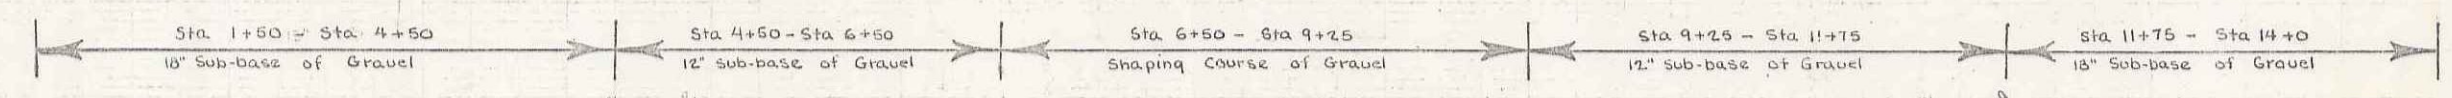 Sta 1+50 - Sta 4+50
18" Sub-base of Gravel
Sta 4+50 - Sta 6+50
12" Sub-base of Gravel
Sta 6+50 - Sta 9+25
Shaping Course of Gravel
Sta 9+25 - Sta 11+75
12" Sub-base of Gravel
Sta 11+75 - Sta 14+0
18" Sub-base of Gravel